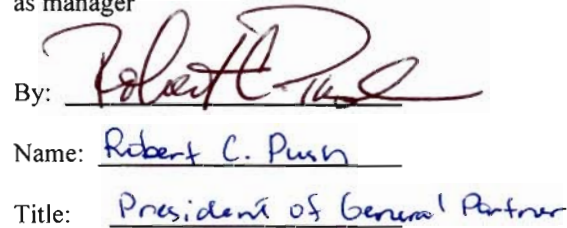 as manager
By: Robert C. Push
Name: Robert C. Push
Title: President of General Partner